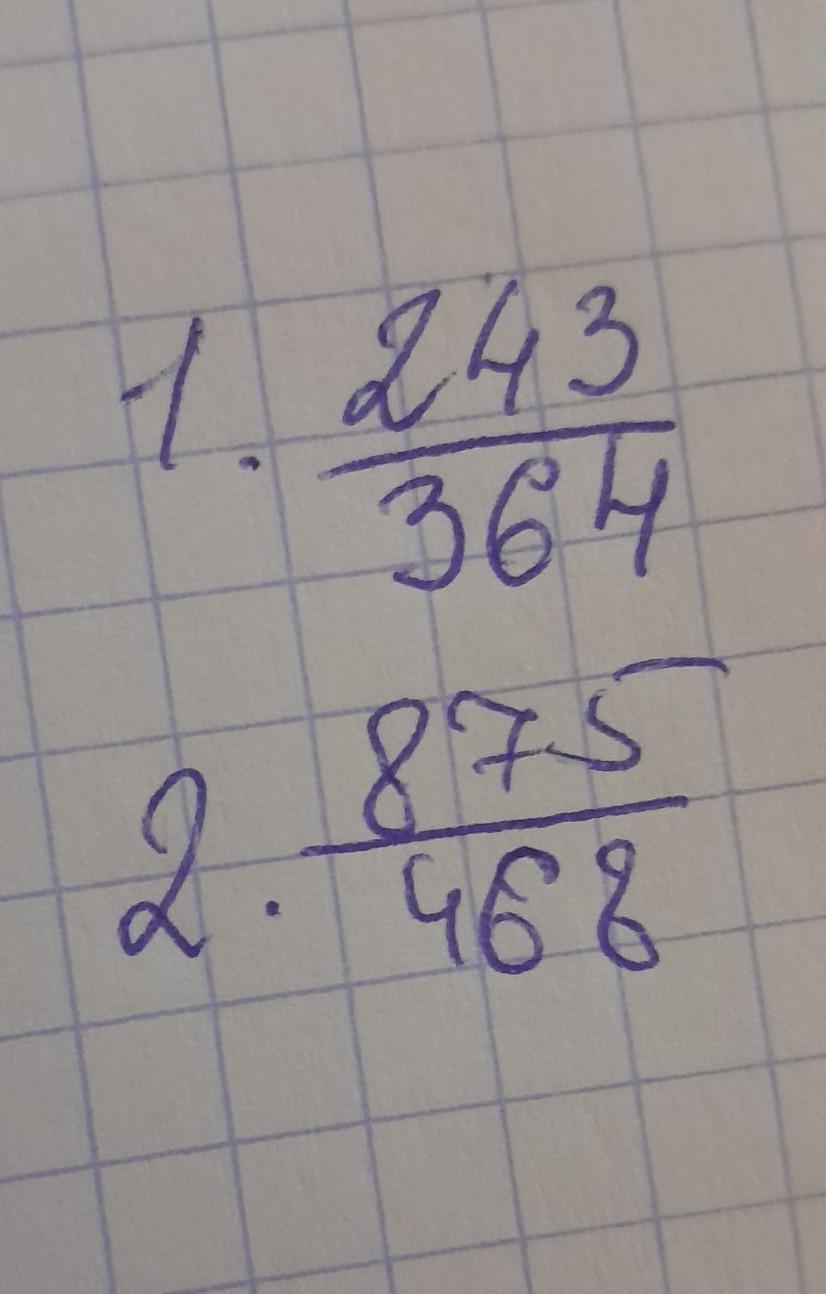 1. 243
364
2. 875
468